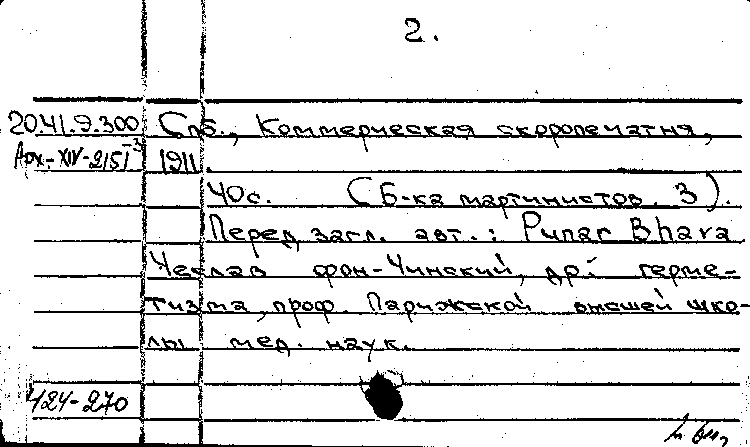 2.
20.41.9.300 Спб., Коммерческая скоропечатня,
Арх-XIV-2151 1911.
40с. (Б-ка мартинистов. 3).
Перед загл. авт.: Punar Bhava
Чеслав фон-Чинский, д-р герме-
тизма, проф. Парижской высшей шко-
лы мед. наук.
424-270